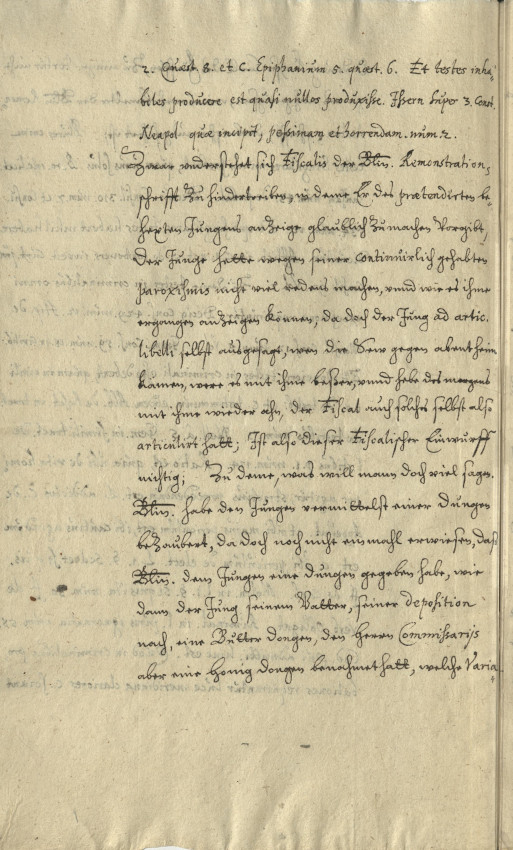 2. Quæst. 8. et C. Epiphanium 5. quæst. 6. Et testes inha=
biles producere est quasi nullos produxisse. Issern super 3. Const.
Neapol. quæ incipit, pessimam et horrendam. num. 2.
Zwar vnderstehet sich Fiscalis der Bltin. Remonstration=
schrifft zu hindertreiben, in deme Er des prætendirten be=
hexten Jungens anzeige glaublich zumachen vorgibt,
der Junge hette wegen seiner continuirlich gehabten
paroxismis nicht viel redens machen, vnnd wie es ihme
ergangen anzeigen können, da doch der Jung ad artic.
libelli selbst außgesagt, wen die Sew gegen abent heim
kamen, were es mit ihme beßer, vnnd hebe des morgens
mit ihme wieder ahn, der Fiscal auch solches selbst also
articulirt hatt; Ist also dieser Fiscalischer Einwurff
nichtig; Zu deme, was will mann doch viel sagen,
Bltin. habe den Jungen vermittelst einer Dungen
bezaubert, da doch noch nicht einmahl erwiesen, daß
Bltin. dem Jungen eine dungen gegeben habe, wie
dann der Jung seinem Vatter, seiner deposition
nach, eine Butter dongen, den herren Commissarijs
aber eine honig dongen benahmet hatt, welche Varia=